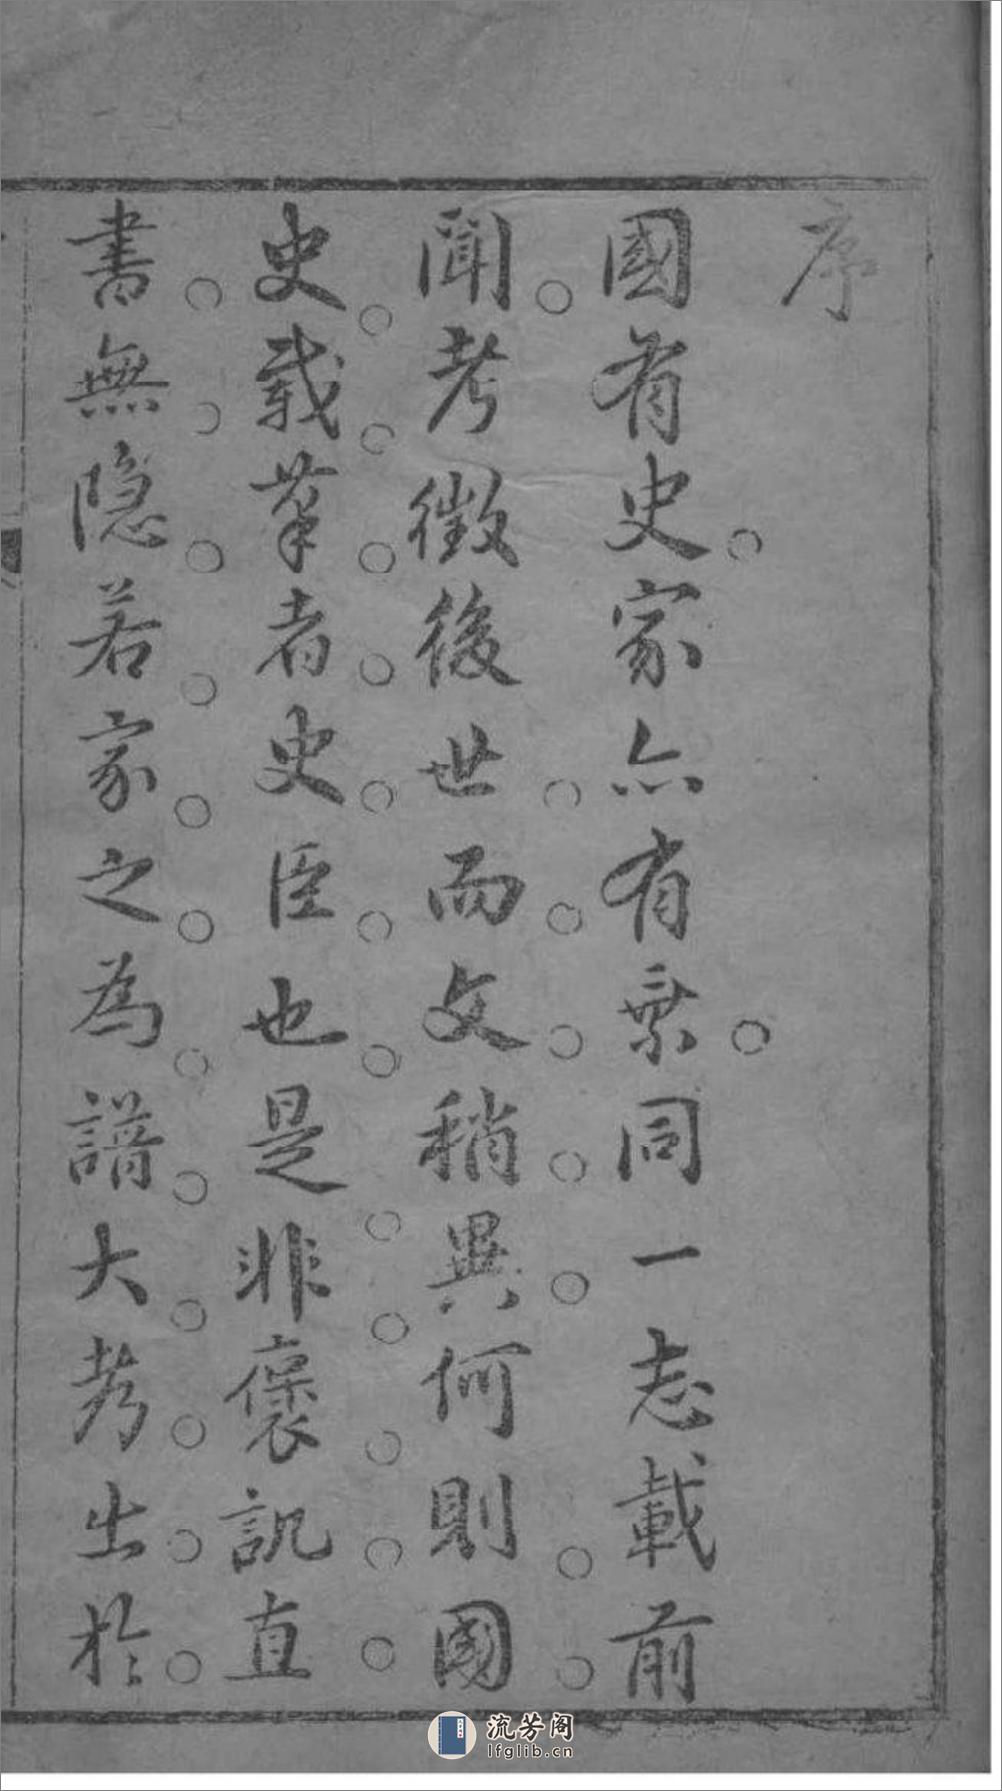 序
國有史家亦有乘同一志載前
聞考徵後世而文稍異何則國
史載筆者史臣也是非褒譏直
書無隐若家之為譜大考出於
流芳阁
lfglib.cn